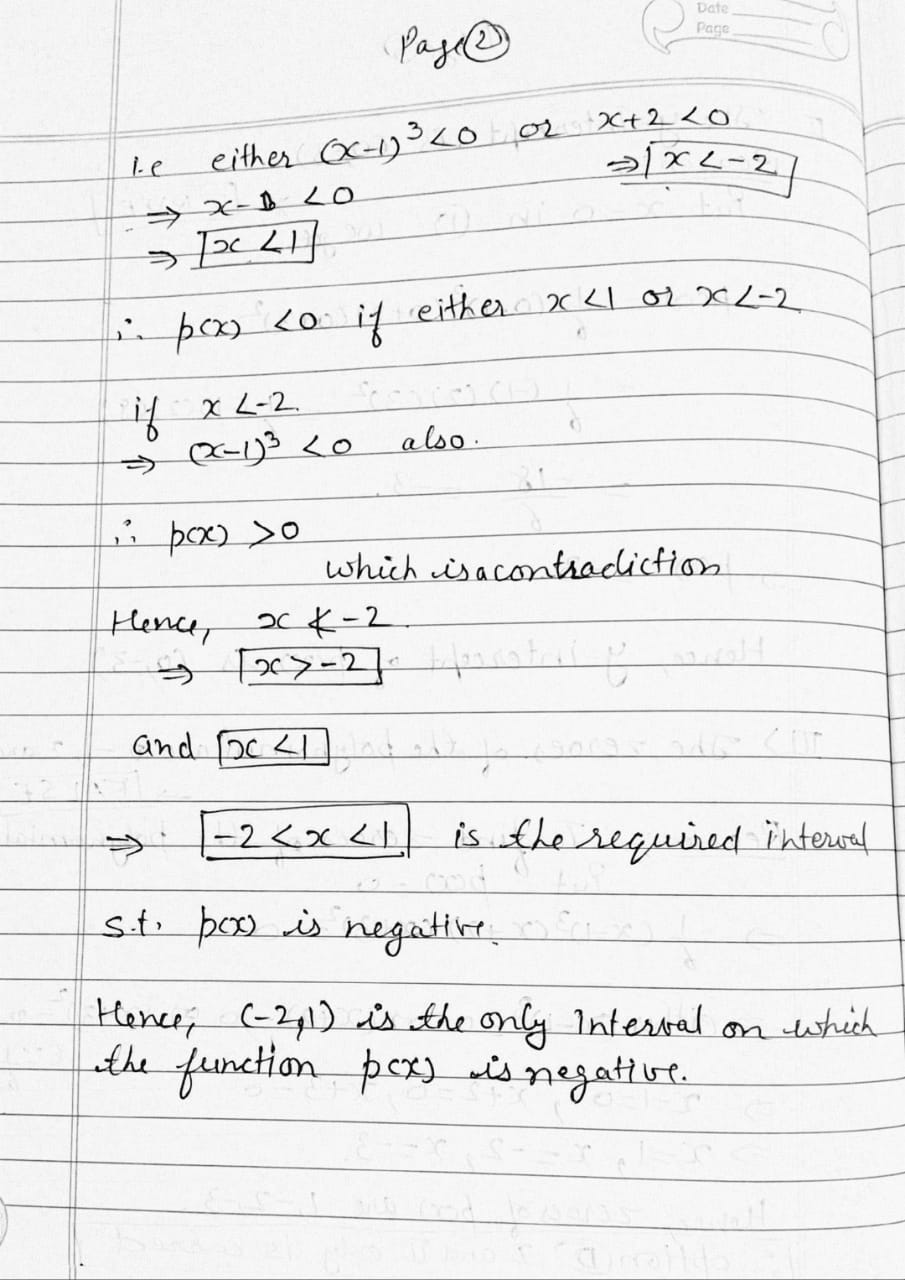 Date
Page
Page ②
i.e either (x-1)³ <0 or x+2 <0
⇒ x-1 <0 ⇒ x <-2
⇒ x <1
∴ p(x) <0 if either x <1 or x <-2
if x <-2.
⇒ (x-1)³ <0 also.
∴ p(x) >0
which is a contradiction
Hence, x ≮ -2.
⇒ x > -2
and x <1
⇒ -2 < x < 1 is the required interval
s.t. p(x) is negative.
Hence, (-2,1) is the only interval on which
the function p(x) is negative.